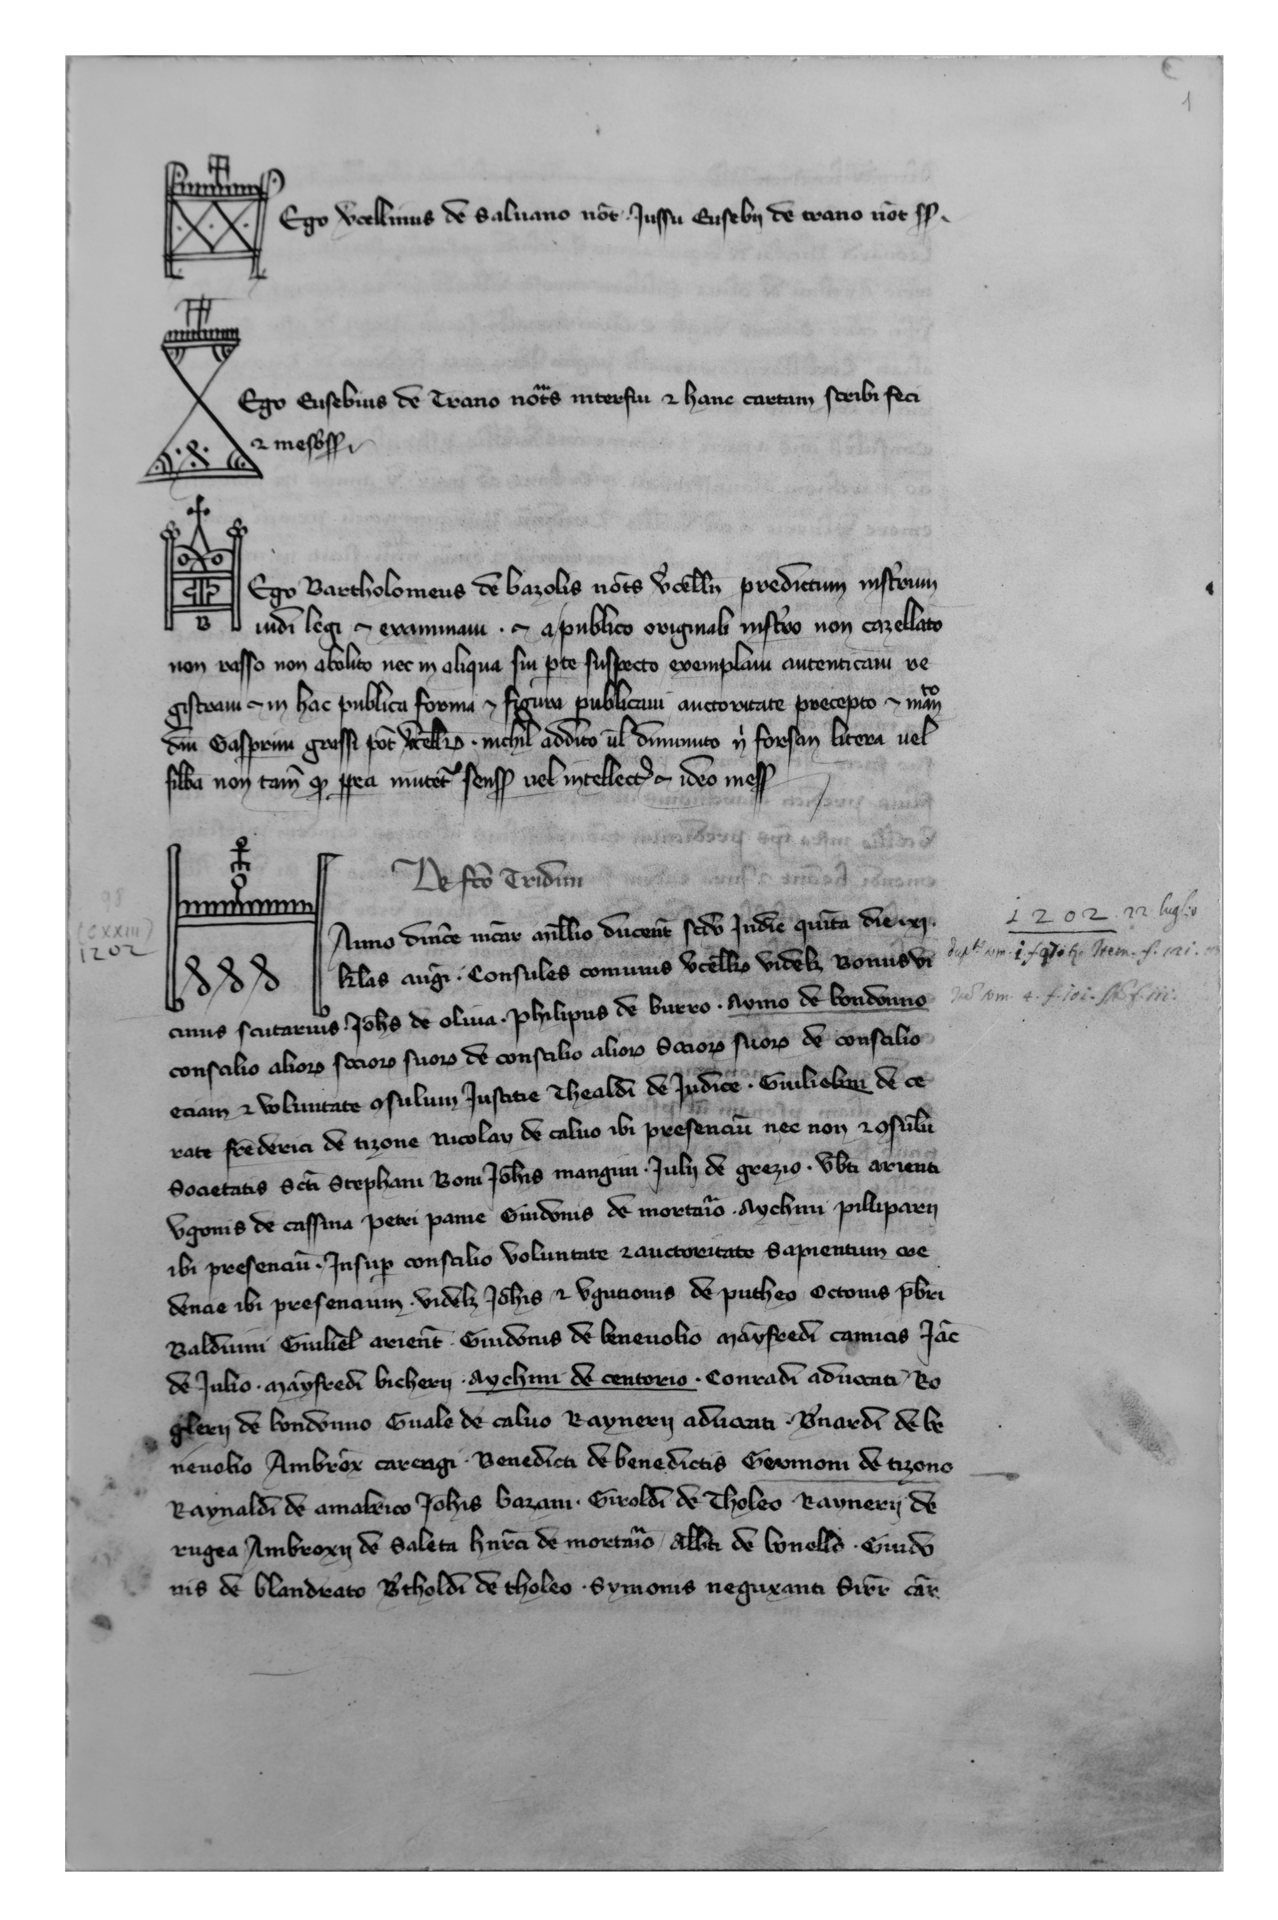 1
Ego Vcellinus de Saluano not. Jussu Eusebij de trano not ss.
Ego Eusebius de Trano nots interfui & hanc cartam scribi feci
& me sbss
Ego Bartholomeus de bazolis nots Vcelln predictum instrum
iudi legi & examinaui . & a publico originali instro non cazellato
non rasso non abolito nec in aliqua sui pte suspecto exemplaui autenticaui re
gistraui & in hac publica forma & figura publicaui auctoritate precepto & manto
dni Gasprini grassi pot Vcell . nichil addito ul diminuto ni forsan litera uel
silba non tam pp ea mutet senss uel intellect & ideo me ss
B
De fco Tridini
98
(CXXIII)
1202
1202. 22 luglio
Anno dnice incar millio ducent scdo Indic quinta die xi.
klas augi. Consules comunis Vcell videlz Bonusvi
cinus scutarius. Johs de oliua. philipus de burro. Aymo de bondonno
conscilio alior socior suor de conscilio alior Socior suor de conscilio
eciam & voluntate 9sulum Justitie Thealdi de Judice. Guilielmi de ce
rate frederici de tizone Nicolay de caluo ibi presenciu nec non & 9sulu
Societatis Scti Stephani Boni Johis mangini. Julij de grezio. Vbti arienti
Vgonis de cassina petri pame Guidonis de mortaro. Aychini pilliparij
ibi presenciu. Insup conscilio voluntate & auctoritate Sapientum cre
dencie ibi presencium. videlz Johis & Vgutionis de putheo Octonis pbri
Balduini Guiliel arient. Guidonis de beneuolio Mayfredi camicis Jac
de Julio. Mayfredi bicherij. Aychini de centorio. Conradi aduocati Ro
glerij de bondonno Guale de caluo Raynerij aduocati. Bnardi de be
neuolio Ambrox carengi. Benedicti de benedictis Germoni de tizono
Raynaldi de amalrico Johis bazani. Giroldi de Tholeo. Raynerij de
rugea Ambroxij de Saleta hnrci de mortaro Albti de bonello. Guido
nis de blandrato Btholdi de tholeo. Symonis neguxanti Sirr car